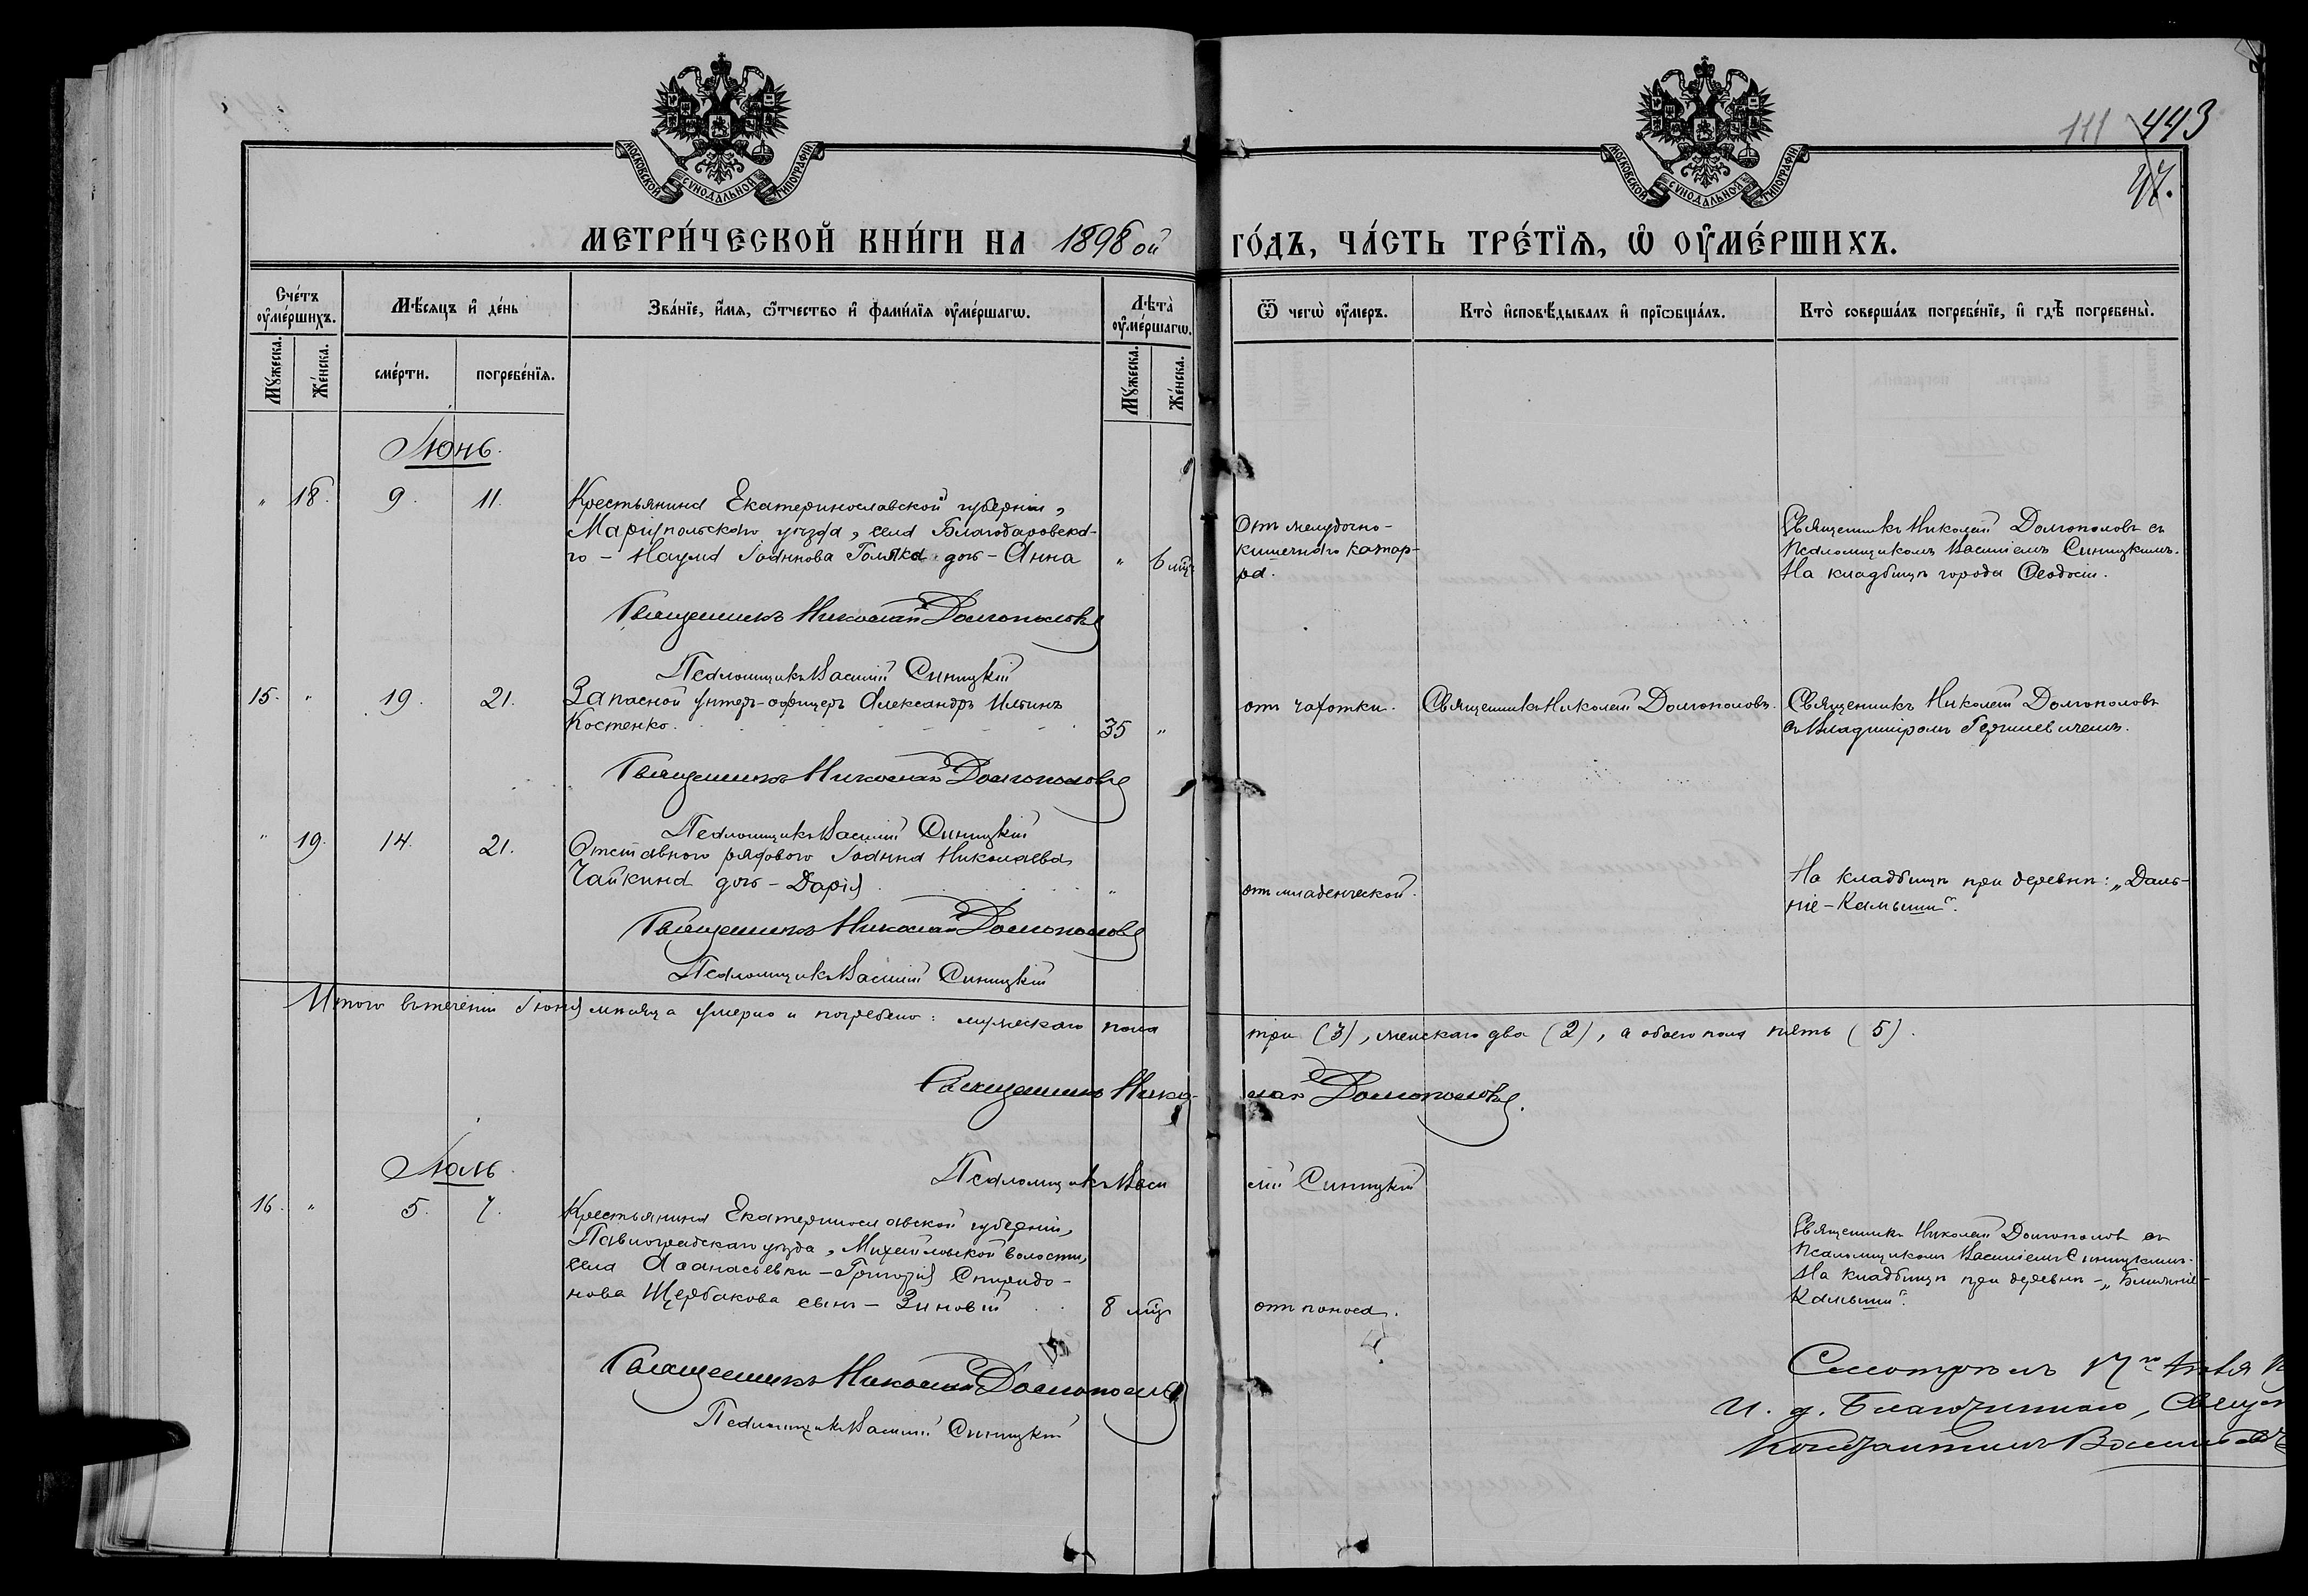 111 443
47.
МОСКОВСКОЙ СѴНОДАЛЬНОЙ ТИПОГРАФІИ
МОСКОВСКОЙ СѴНОДАЛЬНОЙ ТИПОГРАФІИ
МЕТРИ́ЧЕСКОЙ КНИ́ГИ НА 1898 ой го́дъ, ча́сть тре́тїѧ, ѡ҆ ᲂу҆ме́ршихъ.
Сче́тъ ᲂу҆ме́ршихъ.
Мꙋ́жеска.
Же́нска.
Мѣ́сѧцъ и҆ де́нь
сме́рти.
погребе́нїѧ.
Зва́нїе, и҆́мѧ, ѻ҆́тчество и҆ фами́лїѧ ᲂу҆ме́ршагѡ.
Лѣта̀ ᲂу҆ме́ршагѡ.
Мꙋ́жеска.
Же́нска.
Ѿ чегѡ̀ ᲂу҆́меръ.
Кто̀ и҆сповѣ́дывалъ и҆ прїѡбща́лъ.
Кто̀ соверша́лъ погребе́нїе, и҆ гдѣ̀ погребены̀.
Іюнь.
" 18. 9. 11.
Крестьянина Екатеринославской губерніи,
Маріупольскаго уѣзда, села Благодаровска-
го – Наума Іоаннова Голяка дочь – Анна
" 6 мц.
Отъ желудочно-
кишечнаго катар-
ра.
Священникъ Николай Долгополовъ съ
Псаломщикомъ Василіемъ Синицкимъ.
На кладбищѣ города Ѳеодосіи.
Священникъ Николай Долгополовъ
Псаломщикъ Василій Синицкій
15. " 19. 21.
Запасной унтеръ-офицеръ Александръ Ильинъ
Костенко.
35 "
отъ чахотки.
Священникъ Николай Долгополовъ.
Священникъ Николай Долгополовъ
съ Владиміромъ
Священникъ Николай Долгополовъ
Псаломщикъ Василій Синицкій
" 19. 14. 21.
Отставного рядового Іоанна Николаева
Чайкина дочь – Дарія
"
отъ младенческой.
На кладбищѣ при деревнѣ: „Даль-
ніе – Камыши“.
Священникъ Николай Долгополовъ
Псаломщикъ Василій Синицкій
Итого въ теченіи Іюня мѣсяца умерло и погребено: мужескаго пола три (3), женскаго два (2), а обоего пола пять (5).
Священникъ Николай Долгополовъ.
Псаломщикъ Василій Синицкій
Іюль.
16. " 5. 7.
Крестьянина Екатеринославской губерніи,
Павлоградскаго уѣзда, Михайловской волости,
села Аѳанасьевки – Григорія Спиридо-
нова Щербакова сынъ – Зиновій
8 мц.
отъ поноса.
Священникъ Николай Долгополовъ съ
Псаломщикомъ Василіемъ Синицкимъ.
На кладбищѣ при деревнѣ – „Ближніе –
Камыши“.
Священникъ Николай Долгополовъ
Псаломщикъ Василій Синицкій
Смотрѣлъ 17го
И. д. Благочиннаго, Свящ
Константинъ